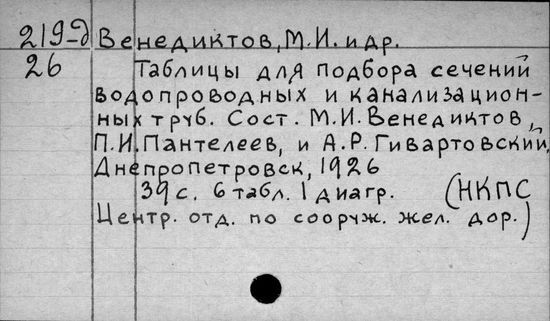 219-д Венедиктов, М.И. и др.
26 Таблицы для подбора сечений
водопроводных и канализацион-
ных труб. Сост. М.И. Венедиктов,
П.И. Пантелеев, и А.Р. Гивартовский,
Днепропетровск, 1926
39 с. 6 табл. 1 диагр. (НКПС
Центр. отд. по сооруж. жел. дор.)